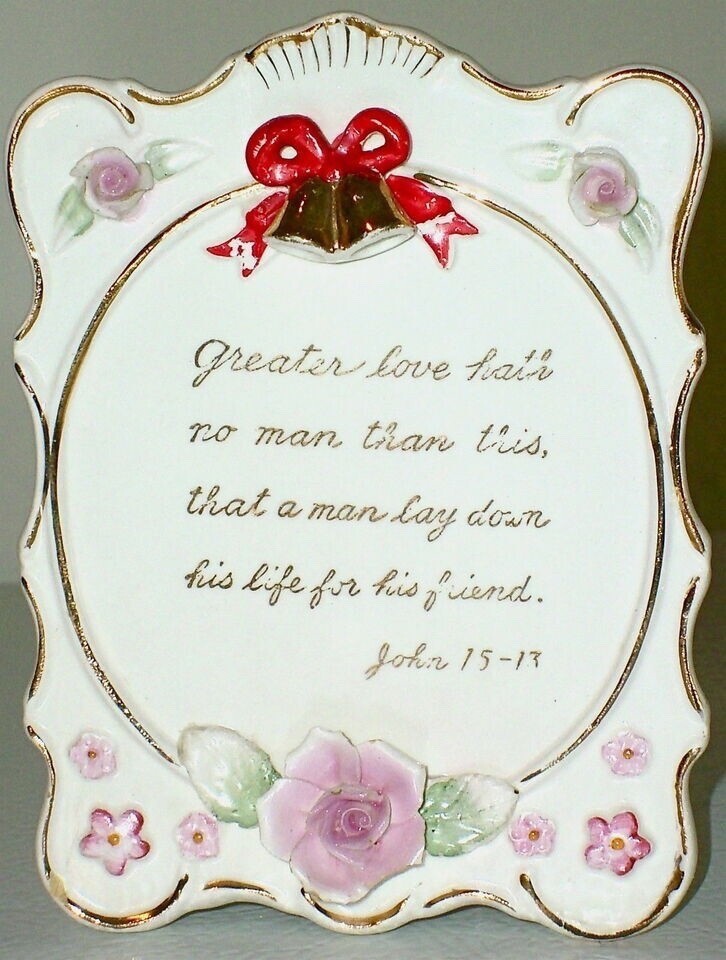 Greater love hath
no man than this,
that a man lay down
his life for his friend.
John 15-13